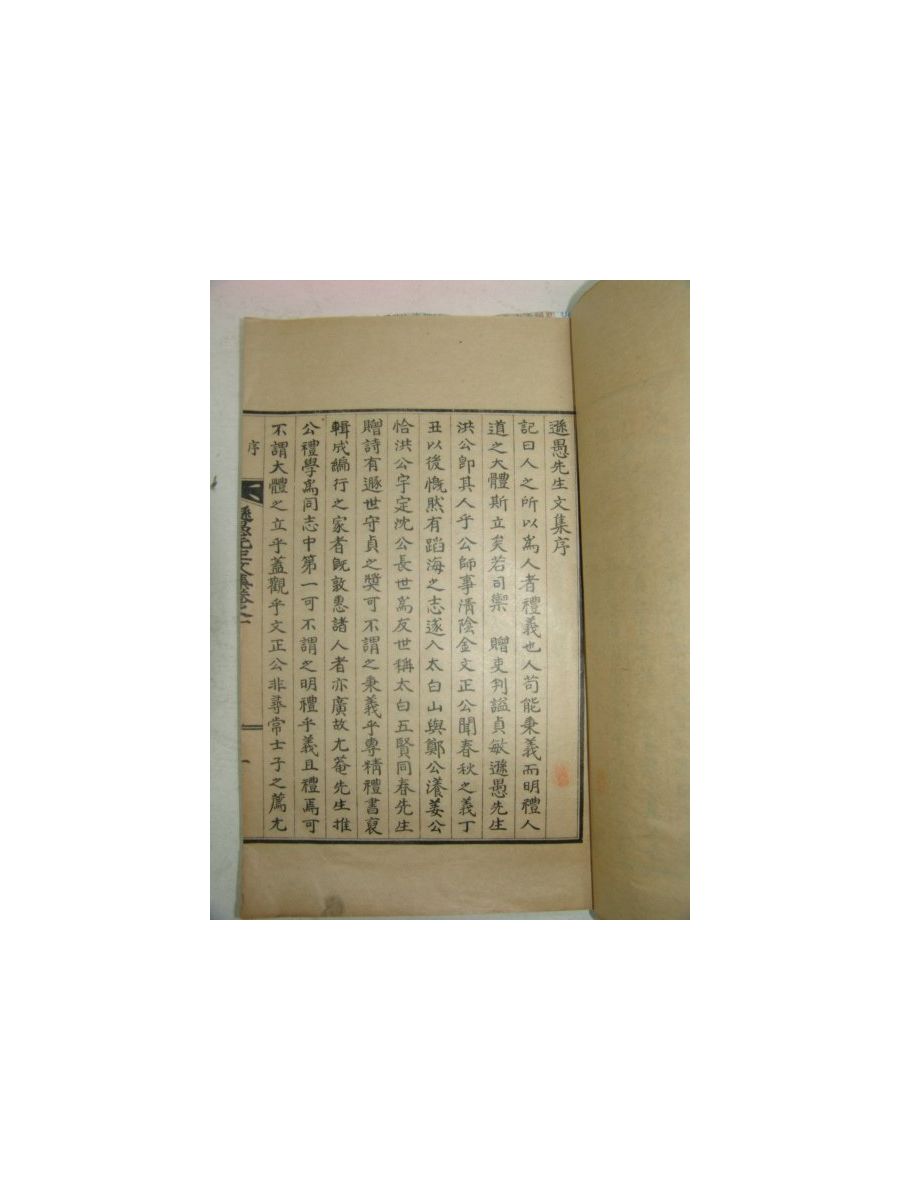 遜愚先生文集序
記曰人之所以爲人者禮義也人苟能秉義而明禮人
道之大體斯立矣若司禦 贈吏判謚貞敏遜愚先生
洪公卽其人乎公師事淸陰金文正公聞春秋之義丁
丑以後慨然有蹈海之志遂入太白山與鄭公瀁姜公
恰洪公宇定沈公長世爲友世稱太白五賢同春先生
贈詩有遯世守貞之獎可不謂之秉義乎專精禮書裒
輯成編行之家者旣敦惠諸人者亦廣故尤菴先生推
公禮學爲同志中第一可不謂之明禮乎義且禮焉可
不謂大體之立乎蓋觀乎文正公非尋常士子之薦尤
序
遜愚先生文集卷之一
一